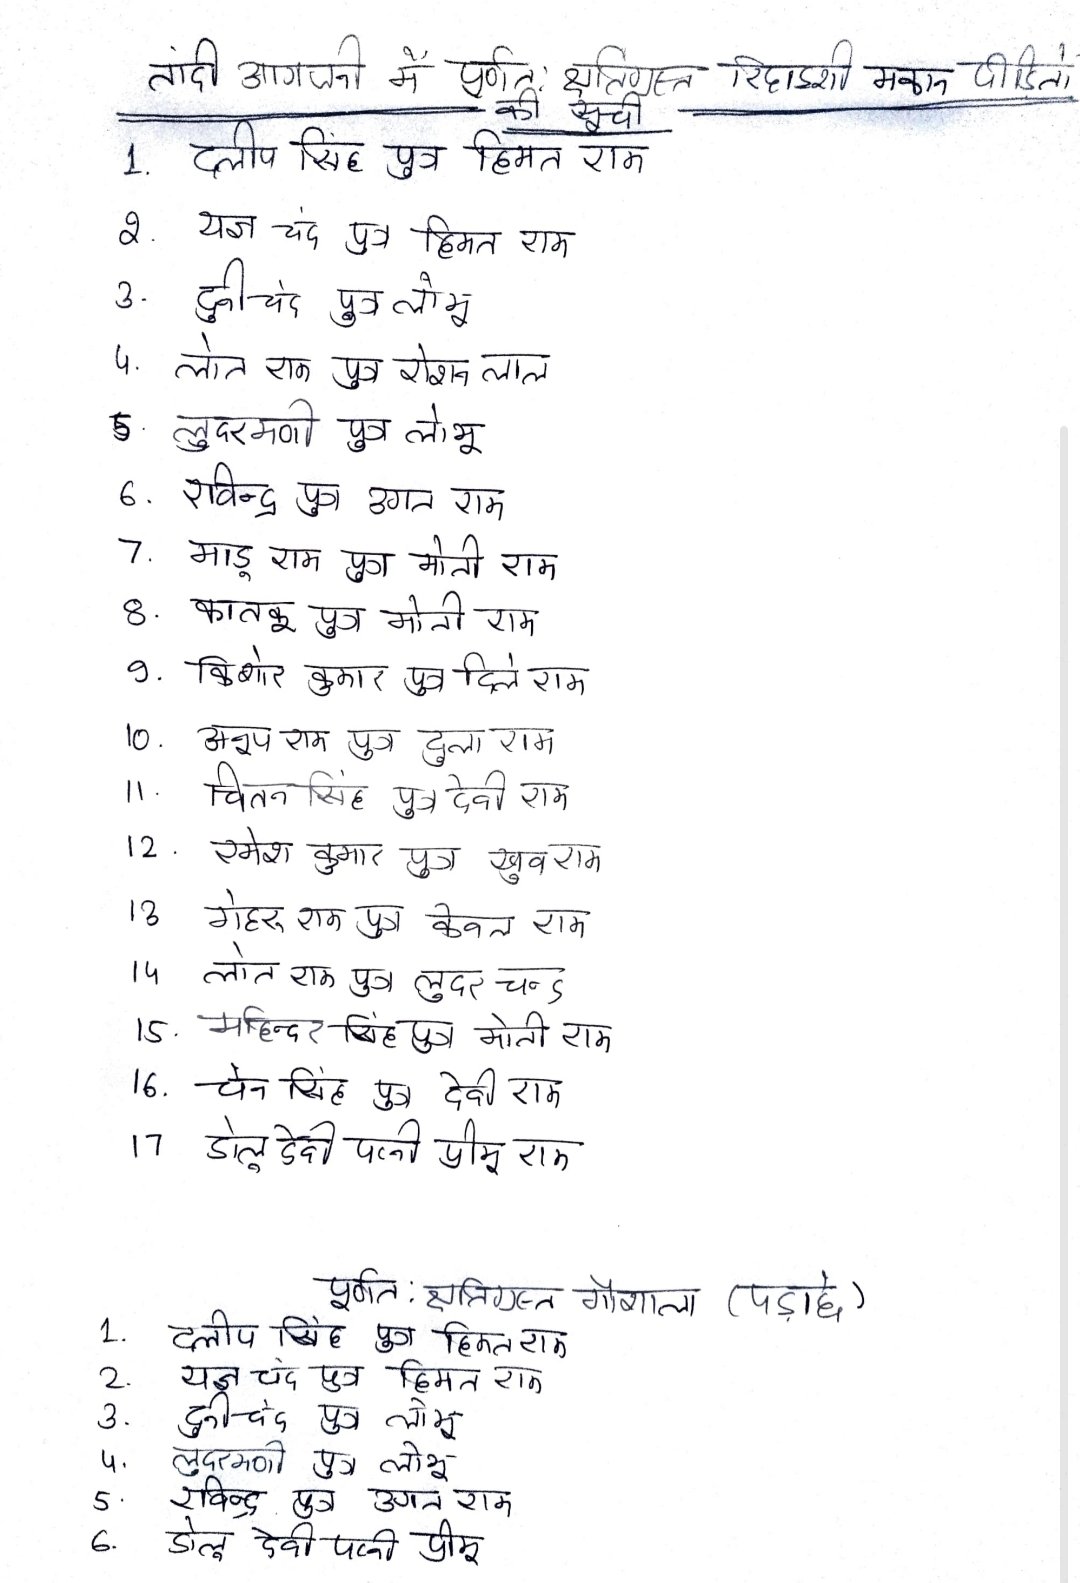 तांदी आगजनी में पूर्णत: क्षतिग्रस्त रिहाइशी मकान पीडितों
की सूची
1. दलीप सिंह पुत्र हिमत राम
2. यज्ञ चंद पुत्र हिमत राम
3. दुनी चंद पुत्र लोभू
4. लोत राम पुत्र रोशन लाल
5. लुदरमणी पुत्र लोभू
6. रविन्द्र पुत्र उगत राम
7. माडू राम पुत्र मोती राम
8. कातकू पुत्र मोती राम
9. किशोर कुमार पुत्र दिले राम
10. अनूप राम पुत्र दुला राम
11. चितन सिंह पुत्र देवी राम
12. रमेश कुमार पुत्र खुव राम
13 गेहरू राम पुत्र केवल राम
14 लोत राम पुत्र लुदर चन्ड
15. महिन्दर सिंह पुत्र मोती राम
16. चेन सिंह पुत्र देवी राम
17 डोलू देवी पत्नी प्रीमू राम
पूर्णत: क्षतिग्रस्त गौशाला (पड़ाछे)
1. दलीप सिंह पुत्र हिमत राम
2. यज्ञ चंद पुत्र हिमत राम
3. दुनी चंद पुत्र लोभू
4. लुदरमणी पुत्र लोभू
5. रविन्द्र पुत्र उगत राम
6. डोलू देवी पत्नी प्रीमू